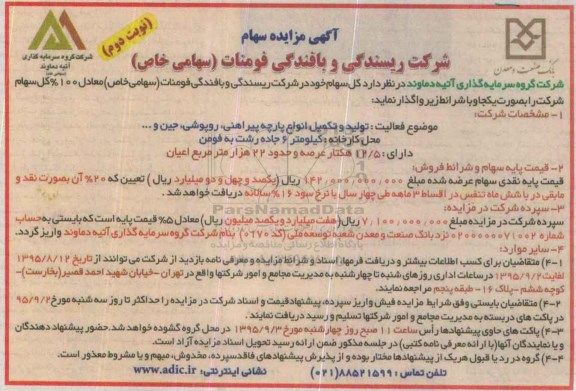 آگهی مزایده سهام
(نوبت دوم)
شرکت ریسندگی و بافندگی فومنات (سهامی خاص)
بانک صنعت و معدن
شرکت گروه سرمایه گذاری
آتیه دماوند
(سهامی عام)
شرکت گروه سرمایه گذاری آتیه دماوند در نظر دارد کل سهام خود در شرکت ریسندگی و بافندگی فومنات (سهامی خاص) معادل ۱۰۰% کل سهام
شرکت را بصورت یکجا و با شرائط زیر واگذار نماید:
۱- مشخصات شرکت:
موضوع فعالیت: تولید و تکمیل انواع پارچه پیراهنی، روپوشی، جین و ...
محل کارخانه: کیلومتر ۶ جاده رشت به فومن
دارای: ۱۲/۵ هکتار عرصه و حدود ۲۲ هزار متر مربع اعیان
۲- قیمت پایه سهام و شرائط فروش:
قیمت پایه نقدی سهام عرضه شده مبلغ ۱۴۲,۰۰۰,۰۰۰,۰۰۰ ریال (یکصد و چهل و دو میلیارد ریال) تعیین که ۲۰% آن بصورت نقد و
مابقی در با شش ماه تنفس در اقساط ۳ ماهه طی چهار سال با نرخ سود ۱۶% سالانه دریافت خواهد شد.
۳- سپرده شرکت در مزایده:
سپرده شرکت در مزایده مبلغ ۷,۱۰۰,۰۰۰,۰۰۰ ریال (هفت میلیارد و یکصد میلیون ریال) معادل ۵% قیمت پایه است که بایستی به حساب
شماره ۰۲۰۰۰۰۰۰۷۱۰۰۲ نزد بانک صنعت و معدن شعبه توسعه ملی (کد ۰۲۷۰) بنام شرکت گروه سرمایه گذاری آتیه دماوند واریز گردد.
ParsNamadData
پایگاه اطلاع رسانی مناقصه و مزایده
۴- سایر موارد:
۴-۱ متقاضیان برای کسب اطلاعات بیشتر و دریافت فرمها، اسناد و شرائط مزایده و معرفی نامه بازدید از شرکت می توانند از تاریخ ۱۳۹۵/۸/۱۲
لغایت ۱۳۹۵/۹/۲ در ساعات اداری روزهای شنبه تا چهارشنبه به مدیریت مجامع و امور شرکتها واقع در تهران - خیابان شهید احمد قصیر (بخارست) -
کوچه ششم - پلاک ۱۶ - طبقه پنجم مراجعه نمایند.
۴-۲ متقاضیان بایستی وفق شرایط مزایده فیش واریز سپرده، پیشنهاد قیمت و اسناد شرکت در مزایده را حداکثر تا روز سه شنبه مورخ ۹۵/۹/۲
در پاکت های دربسته به مدیریت مجامع و امور شرکتها تسلیم و رسید دریافت نمایند.
۴-۳ پاکت های حاوی پیشنهادها رأس ساعت ۱۱ صبح روز چهارشنبه مورخ ۱۳۹۵/۹/۳ در محل گروه گشوده خواهد شد. حضور پیشنهاد دهندگان
و یا نمایندگان آنها (با ارائه معرفی نامه کتبی) در جلسه مذکور ضمن ارائه رسید تحویل اسناد مزایده آزاد است.
۴-۴ گروه در رد یا قبول هریک از پیشنهادها مختار بوده و از پذیرش پیشنهادهای فاقد سپرده، مخدوش، مبهم و یا مشروط معذور است.
تلفن تماس: ۸۸۵۲۱۵۹۹ (۰۲۱) نشانی اینترنتی: www.adic.ir